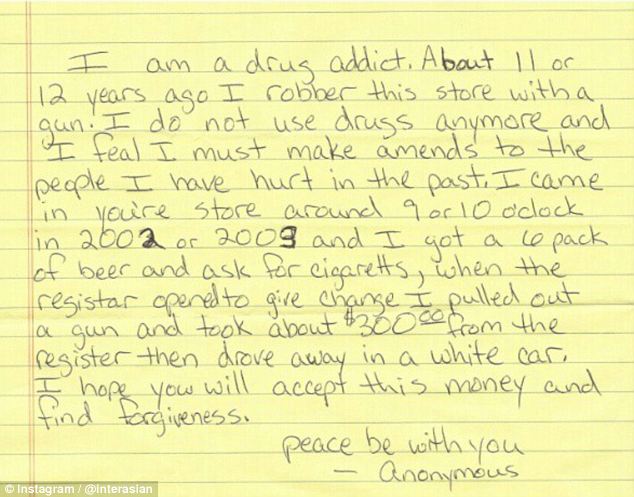 I am a drug addict. About 11 or
12 years ago I robber this store with a
gun. I do not use drugs anymore and
I feal I must make amends to the
people I have hurt in the past. I came
in you're store around 9 or 10 oclock
in 2002 or 2003 and I got a 6 pack
of beer and ask for cigaretts, when the
registar opened to give change I pulled out
a gun and took about $300.00 from the
register then drove away in a white car.
I hope you will accept this money and
find forgiveness.
peace be with you
— Anonymous
© Instagram / @Interasian